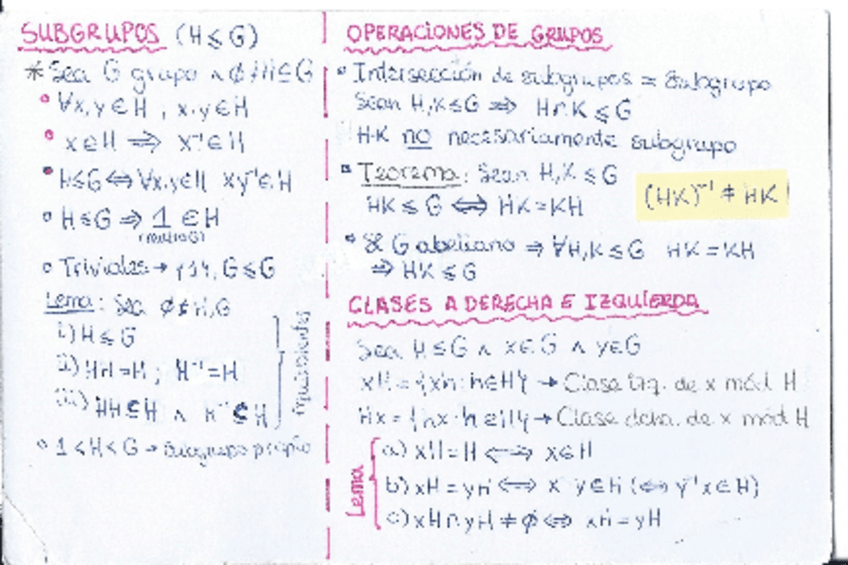 SUBGRUPOS (H ≤ G)
* Sea G grupo ∧ ∅ ≠ H ⊆ G
• ∀x,y ∈ H, x·y ∈ H
• x ∈ H ⟹ x⁻¹ ∈ H
• H ≤ G ⟺ ∀x,y ∈ H xy⁻¹ ∈ H
• H ≤ G ⟹ 1 ∈ H
(neutro G)
• Triviales → {1}, G ≤ G
Lema: Sea ∅ ≠ H, G
i) H ≤ G
ii) HH = H ; H⁻¹ = H
iii) HH ⊆ H ∧ H⁻¹ ⊆ H
equivalentes
• 1 < H < G → Subgrupo propio
OPERACIONES DE GRUPOS
• Intersección de subgrupos = Subgrupo
Sean H,K ≤ G ⟹ H ∩ K ≤ G
H·K no necesariamente subgrupo
• Teorema: Sean H,K ≤ G
HK ≤ G ⟺ HK = KH
(HK)⁻¹ ≠ HK
• Si G abeliano ⟹ ∀H,K ≤ G HK = KH
⟹ HK ≤ G
CLASES A DERECHA E IZQUIERDA
Sea H ≤ G ∧ x ∈ G ∧ y ∈ G
xH = {xh : h ∈ H} → Clase izq. de x mód H
Hx = {hx : h ∈ H} → Clase dcha. de x mód H
Lema
a) xH = H ⟺ x ∈ H
b) xH = yH ⟺ x⁻¹y ∈ H (⟺ y⁻¹x ∈ H)
c) xH ∩ yH ≠ ∅ ⟺ xH = yH